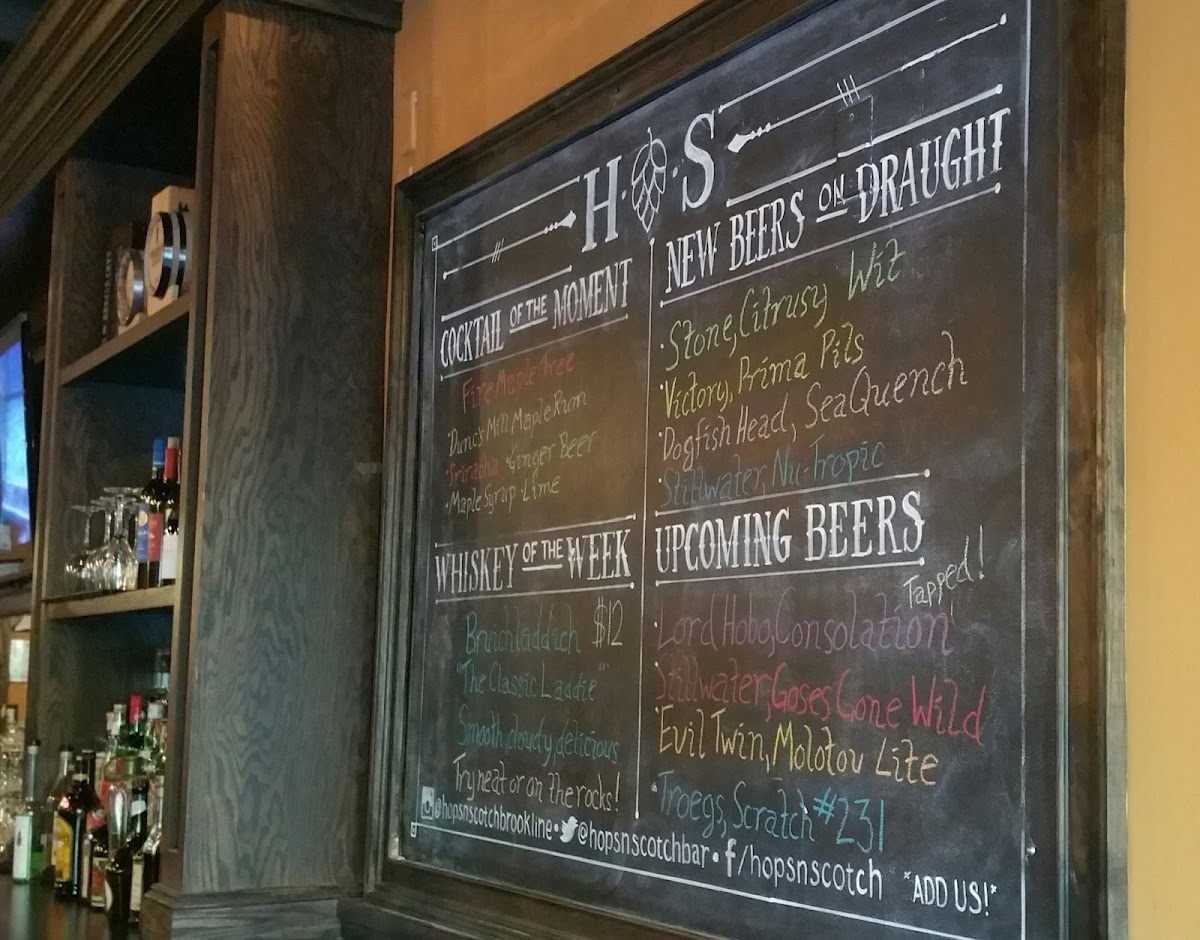 H · S
COCKTAIL OF THE MOMENT
Fire Maple Tree
·Dunc's Mill Maple Rum
·Sriracha ·Ginger Beer
·Maple Syrup ·Lime
WHISKEY OF THE WEEK
Bruichladdich $12
"The Classic Laddie"
Smooth, cloudy, delicious
Try neat or on the rocks!
NEW BEERS ON DRAUGHT
·Stone, Citrusy Wit
·Victory, Prima Pils
·Dogfish Head, SeaQuench
·Stillwater, Nu-Tropic
UPCOMING BEERS
Tapped!
·Lord Hobo, Consolation
·Stillwater, Goses Gone Wild
·Evil Twin, Molotov Lite
·Troegs, Scratch #231
@hopsnscotchbrookline • @hopsnscotchbar • f/hopsnscotch *ADD US!*